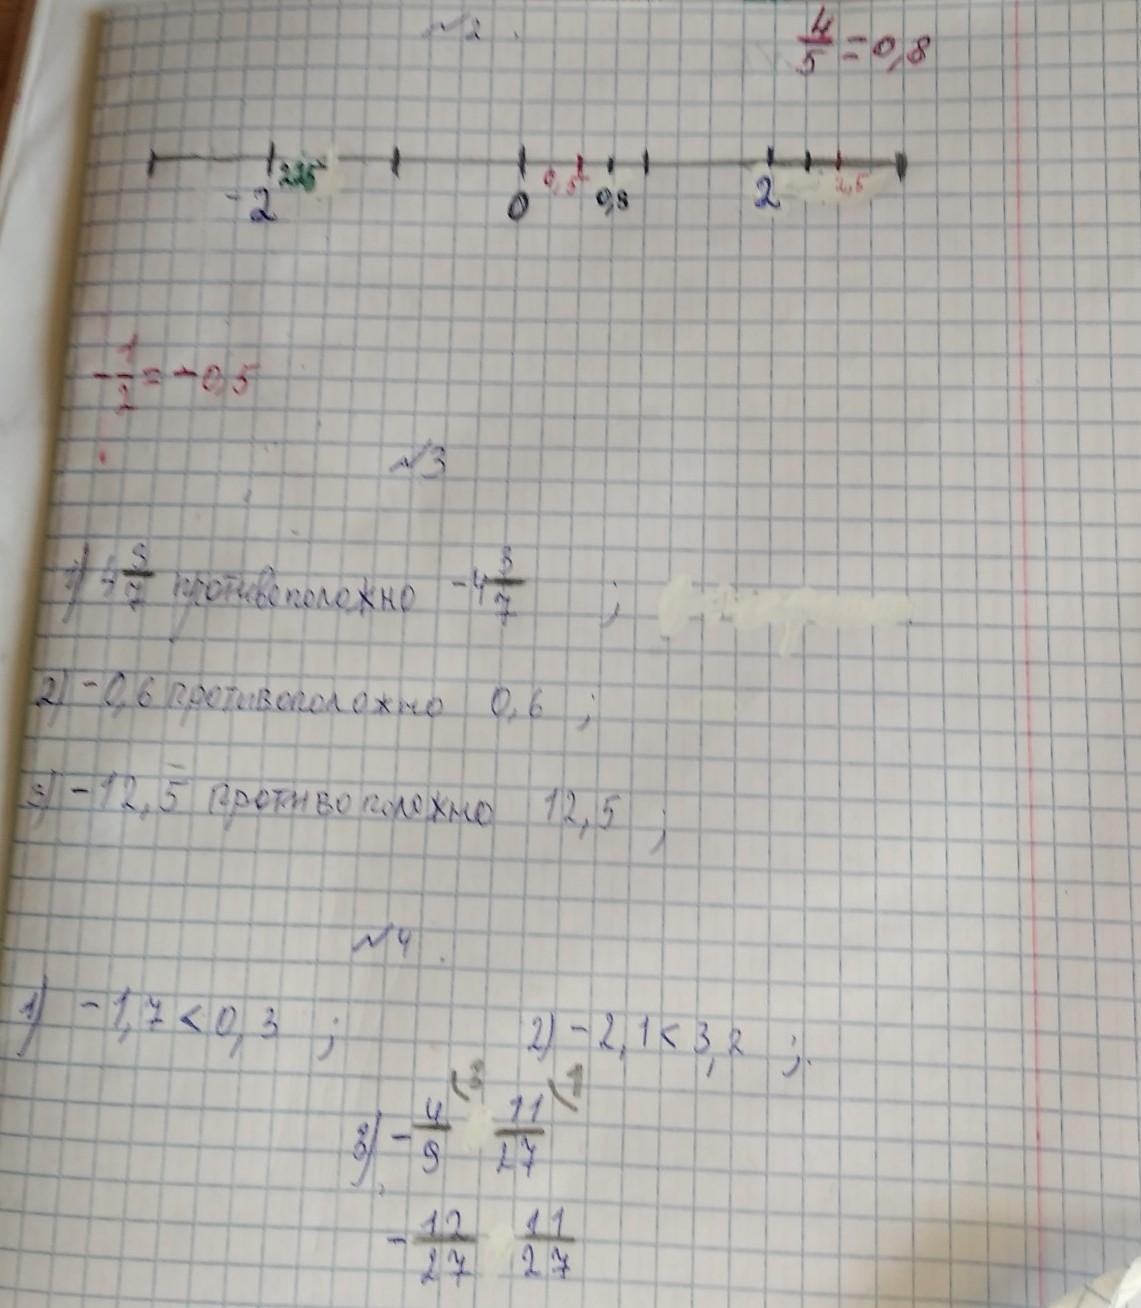 №2.
4/5 = 0,8
-2 2,25 0 0,5 0,8 2 2,5
-1/2 = -0,5
№3
1) 4 3/7 противоположно -4 3/7 ;
2) -0,6 противоположно 0,6 ;
3) -12,5 противоположно 12,5 ;
№4.
1) -1,7 < 0,3 ; 2) -2,1 < 3,2 ;.
3) -4/9 (3 11/27 (1
-12/27 11/27